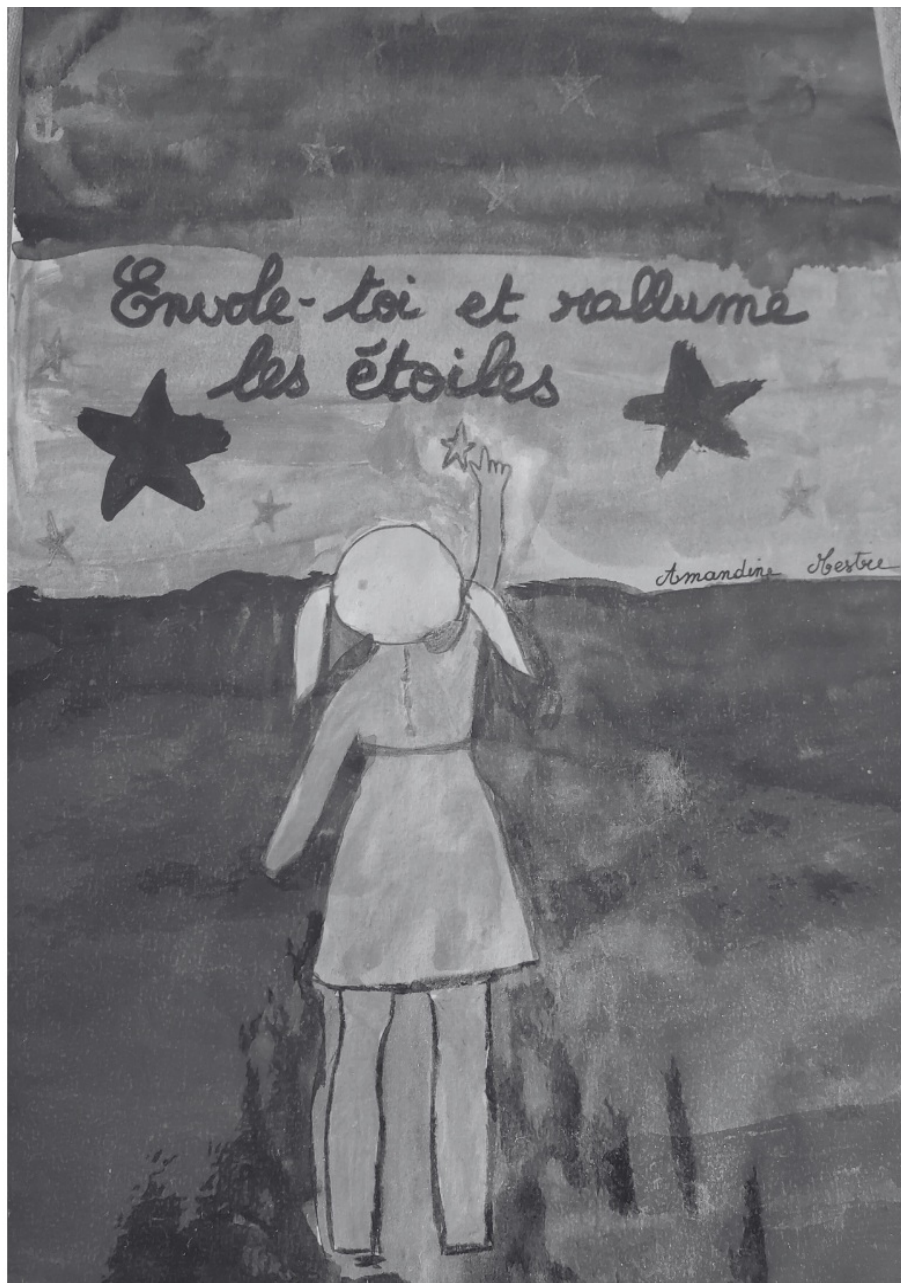 Envole-toi et rallume
les étoiles
Amandine Mestre